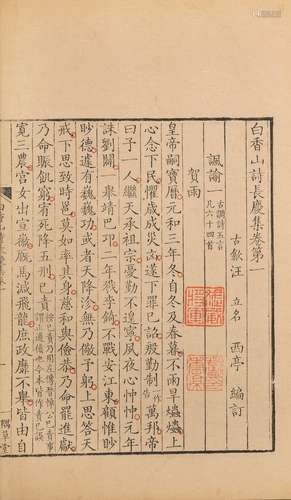 白香山詩長慶集卷第一
古歙汪 立名 西亭 編訂
諷諭一 古調詩五言凡六十四首
賀雨
皇帝嗣寶曆元和三年冬自冬及春暮不雨旱爞爞上
心念下民懼歲成災凶遂下罪己詔殷勤制告萬邦帝
曰予一人繼天承祖宗憂勤不遑寧夙夜心忡忡元年
誅劉闢一舉靖巴邛二年戮李錡不戰安江東顧惟眇
眇德遽有巍巍功或者天降沴無乃儆予躬上思答天
戒下思致時邕莫如率其身慈和與儉恭乃命罷進獻
乃命賑飢窮宥死降五刑已責
寬三農宮女出宣徽廄馬減飛龍庶政靡不舉皆由自